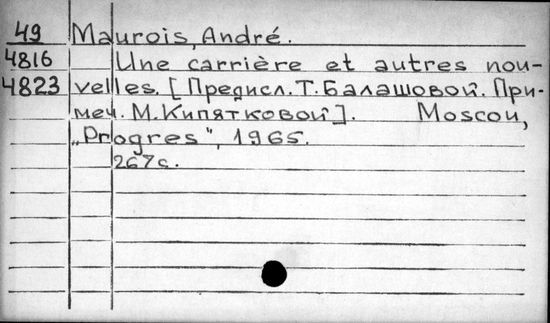 49 Maurois, André.
4816 Une carrière et autres nou-
4823 velles. [Предисл. Т. Балашовой. При-
меч. М. Кипятковой]. Moscou,
„Progres", 1965.
267с.